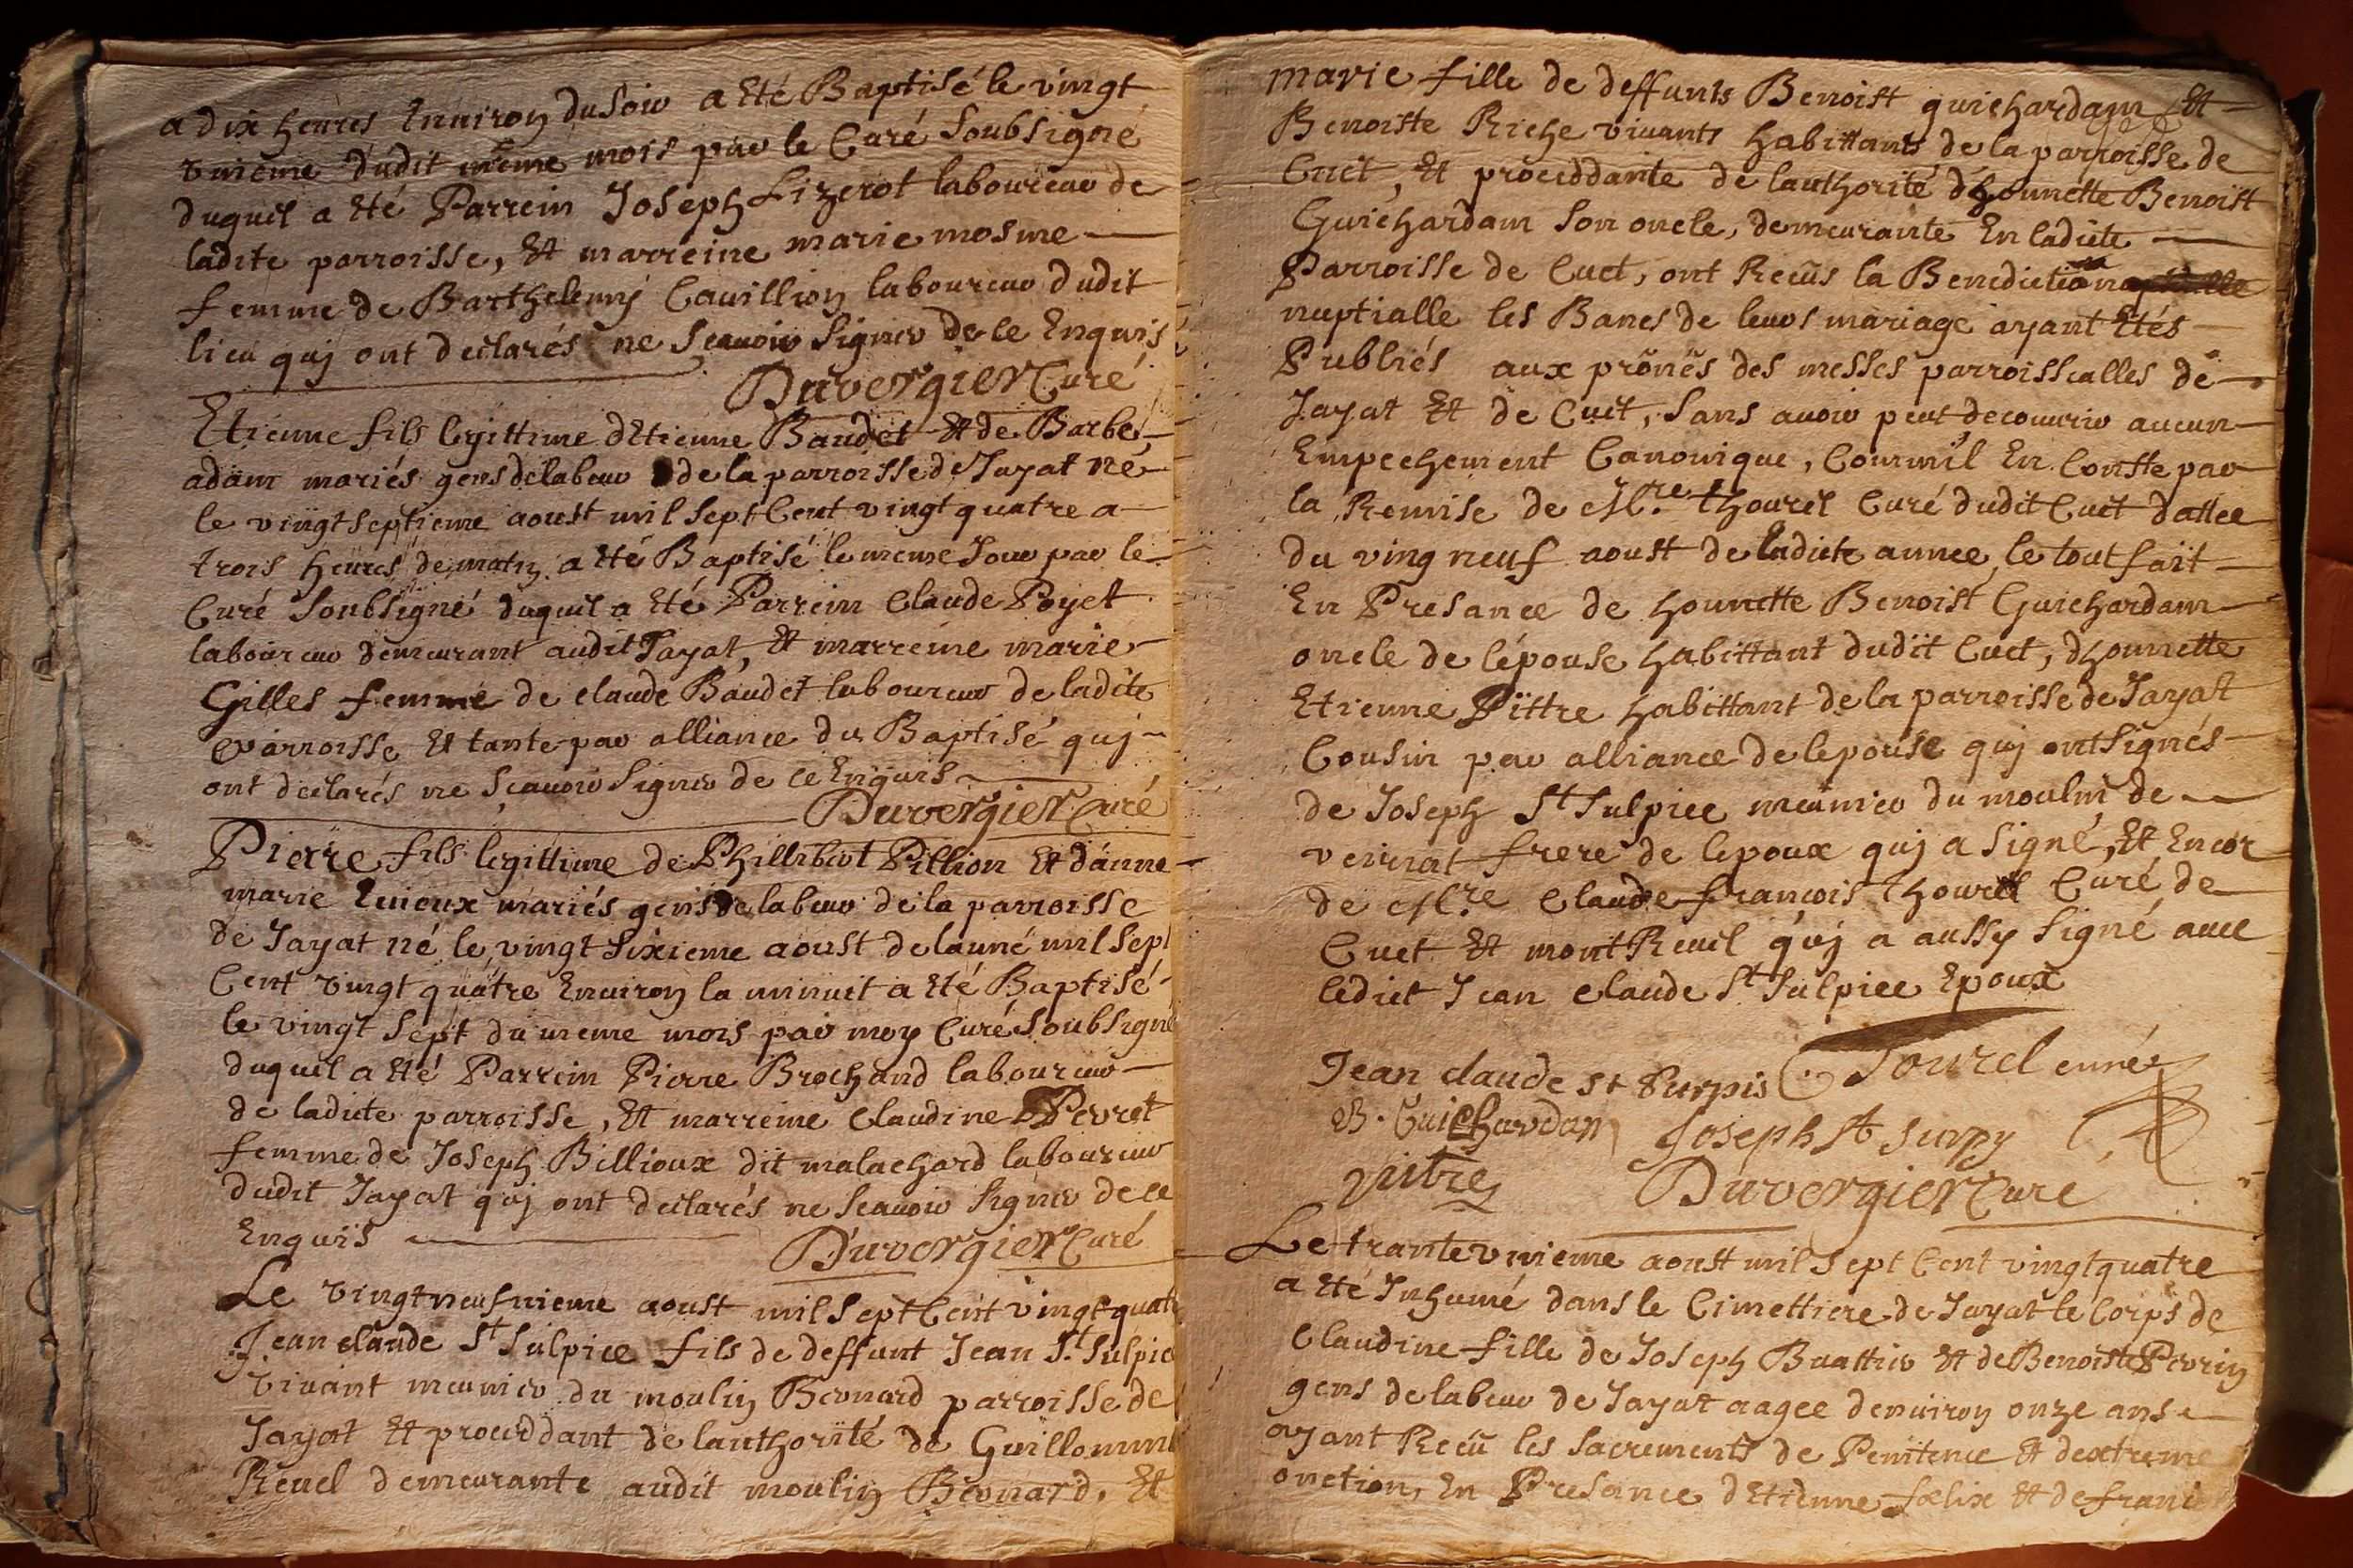 a dix heures Enuiron du Soir a Eté Baptisé le vingt
vnieme dudit même mois par le Curé Soubsigné
duquel a Eté Parrein Joseph Lizerot laboureur de
ladite parroisse, Et marreine marie mosme
femme de Barthelemÿ Cauillion laboureur dudit
lieu quj ont declarés ne Scauoir Signer de ce Enquis
Duvergier Curé
Etienne fils legittime dEtienne Baudet Et de Barbe
adam mariés gens de labeur de la parroisse de Jayat né
le vingt septieme aoust mil sept Cent vingt quatre a
trois heures de matin a Eté Baptisé le meme Jour par le
Curé Soubsigné duquel a Eté Parrein Claude Poyet
laboureur demeurant audit Jayat, Et marreine marie
Gilles femme de claude Baudet laboureur de ladite
parroisse Et tante par alliance du Baptisé quj
ont declarés ne Sçauoir Signer de ce Enquis
Duvergier Curé
Pierre fils legittime de Phillibert Pillion Et danne
marie Luioux mariés gens de labeur de la parroisse
de Jayat né le vingt Sixieme aoust de lanné mil sept
Cent vingt quatre Enuiron la minuit a Eté Baptisé
le vingt Sept du meme mois par moy Curé Soubsigné
duquel a Eté Parrein Pierre Brochand laboureur
de ladicte parroisse, Et marreine Claudine Pevret
femme de Joseph Billioux dit malachard laboureur
dudit Jayat quj ont declarés ne Scauoir Signer de ce
Enquis
Duvergier Curé
Le vingt neufuieme aoust mil Sept Cent vingt quatre
Jean claude St Sulpice fils de deffunt Jean St Sulpice
viuant meunier du moulin Bernard parroisse de
Jayat Et proceddant de lauthorité de Guillomine
Reuel demeurante audit moulin Bernard, Et
marie fille de deffunts Benoist guichardam Et
Benoiste Riche viuants habittants de la parroisse de
Cuet, Et proceddante de lauthorité dhonnette Benoist
Guichardam Son oncle, demeurante En ladicte
Parroisse de Cuet, ont Recûs la Benediction
nuptialle les Bancs de leurs mariage ayant Etés
Publiés aux prônes des messes parroissealles de
Jayat Et de Cuet, Sans auoir peut decouurir aucun
Empechement Canonique, Comm'il En Conste par
la Remise de Mre thourel Curé dudit Cuet dattee
du ving neuf aoust de ladicte annee, le tout fait
En Presance de honnette Benoist Guichardam
oncle de lépouse habittant dudit Cuet, dhonnette
Etienne Pittre habittant de la parroisse de Jayat
Cousin par alliance de lepouse quj ont Signés
de Joseph St Sulpice meünier du moulin de
veiriat frere de lepoux quj a Signé, Et Encor
de Mre Claude francois thourel Curé de
Cuet Et montReuil quj a aussy Signé auec
ledict Jean claude St Sulpice Epoux
Jean claude st Surpis Tourel curé
B. Guichardan Joseph st surpy
pitre Duvergier Curé
Le trante vnieme aoust mil Sept Cent vingt quatre
a Eté Inhumé dans le Cimettiere de Jayat le Corps de
Claudine fille de Joseph Buattier Et de Benoiste Pevrin
gens de labeur de Jayat aagee denuiron onze ans
ayant Recû les Sacrements de Penitence Et dextreme
onction, En Presance dEtienne foelix Et de francois